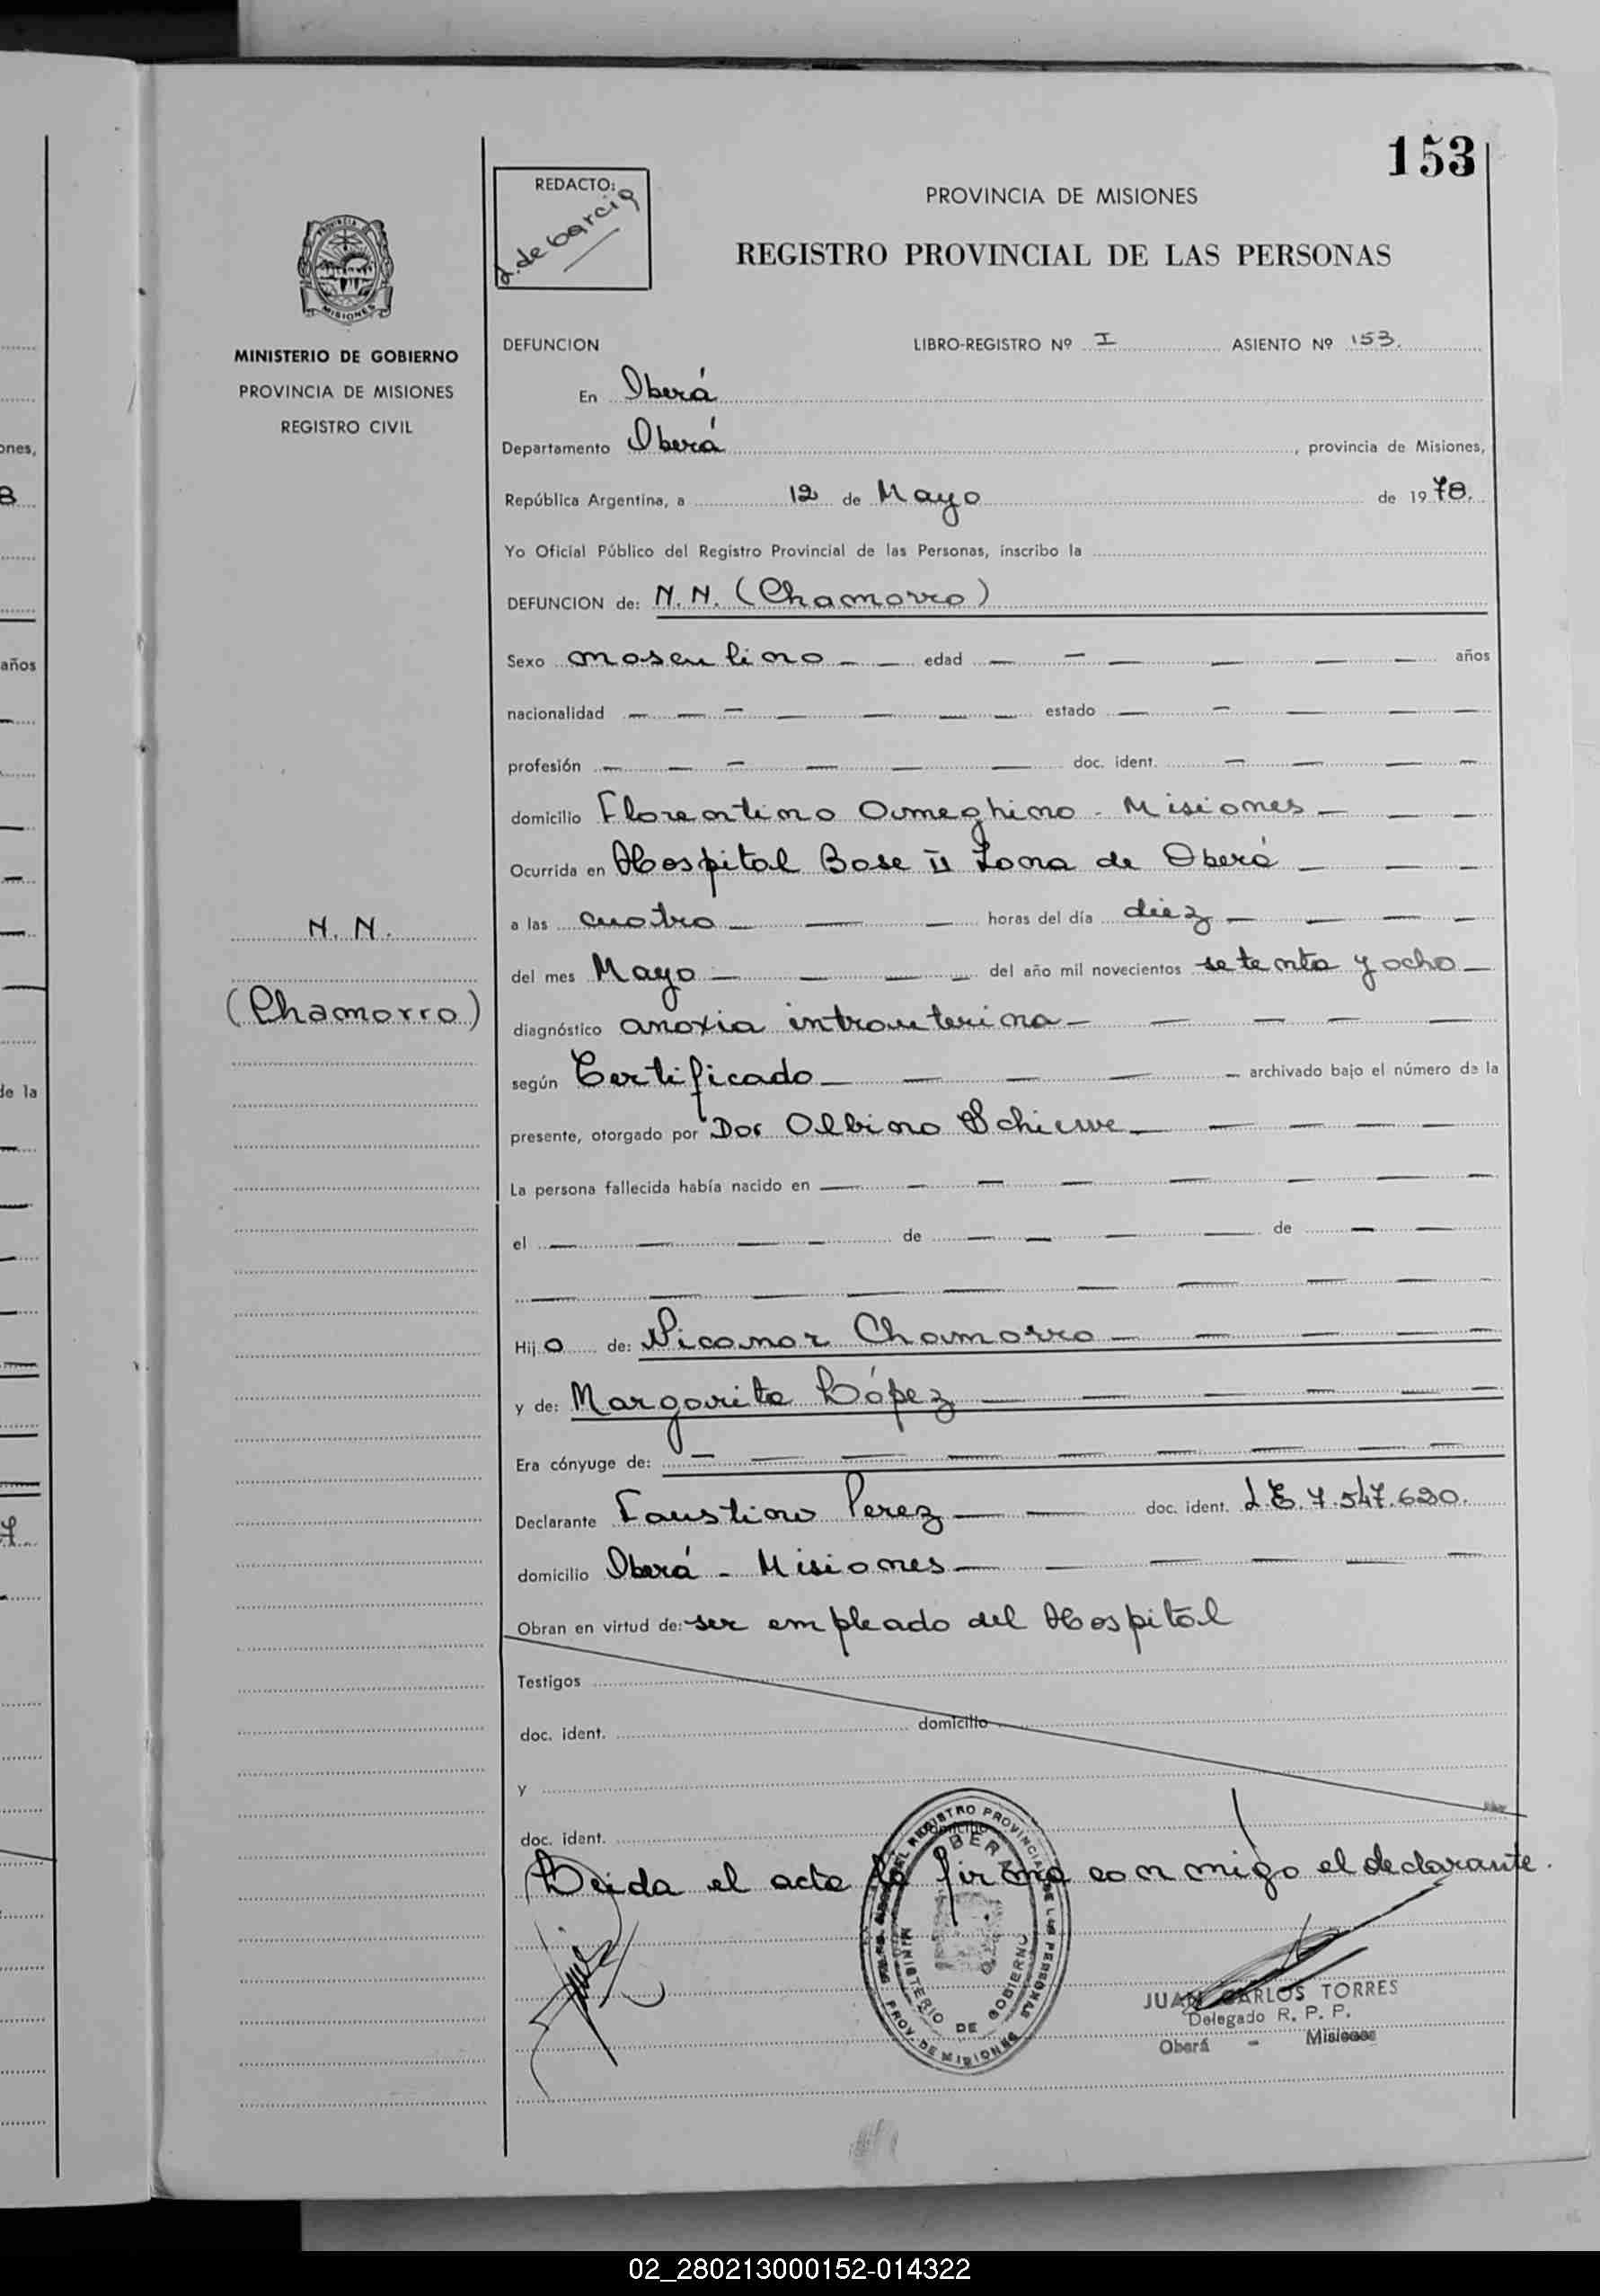 153
REDACTO:
d. de Garcia
PROVINCIA DE MISIONES
REGISTRO PROVINCIAL DE LAS PERSONAS
MINISTERIO DE GOBIERNO
PROVINCIA DE MISIONES
REGISTRO CIVIL
DEFUNCION LIBRO-REGISTRO Nº I ASIENTO Nº 153.
En Oberá
Departamento Oberá, provincia de Misiones,
República Argentina, a 12 de Mayo de 1978.
Yo Oficial Público del Registro Provincial de las Personas, inscribo la
DEFUNCION de: N.N. (Chamorro)
Sexo masculino edad años
nacionalidad estado
profesión doc. ident.
domicilio Florentino Ameghino - Misiones
Ocurrida en Hospital Base II Zona de Oberá
N.N.
(Chamorro)
a las cuatro horas del día diez
del mes Mayo del año mil novecientos setenta y ocho
diagnóstico anoxia intrauterina
según Certificado archivado bajo el número de la
presente, otorgado por Dor Albino
La persona fallecida había nacido en
el de de
Hijo de: Nicanor Chamorro
y de: Margarita López
Era cónyuge de:
Declarante Faustino Perez doc. ident. L.E. 7.547.630.
domicilio Oberá - Misiones
Obran en virtud de: ser empleado del Hospital
Testigos
doc. ident. domicilio
y
doc. ident. domicilio
Leida el acta la firma conmigo el declarante.
REGISTRO PROVINCIAL DE LAS PERSONAS
OBERA
MINISTERIO DE GOBIERNO
PROV. DE MISIONES
JUAN CARLOS TORRES
Delegado R. P. P.
Oberá - Misiones
ones,
8
años
de la
7
02_280213000152-014322